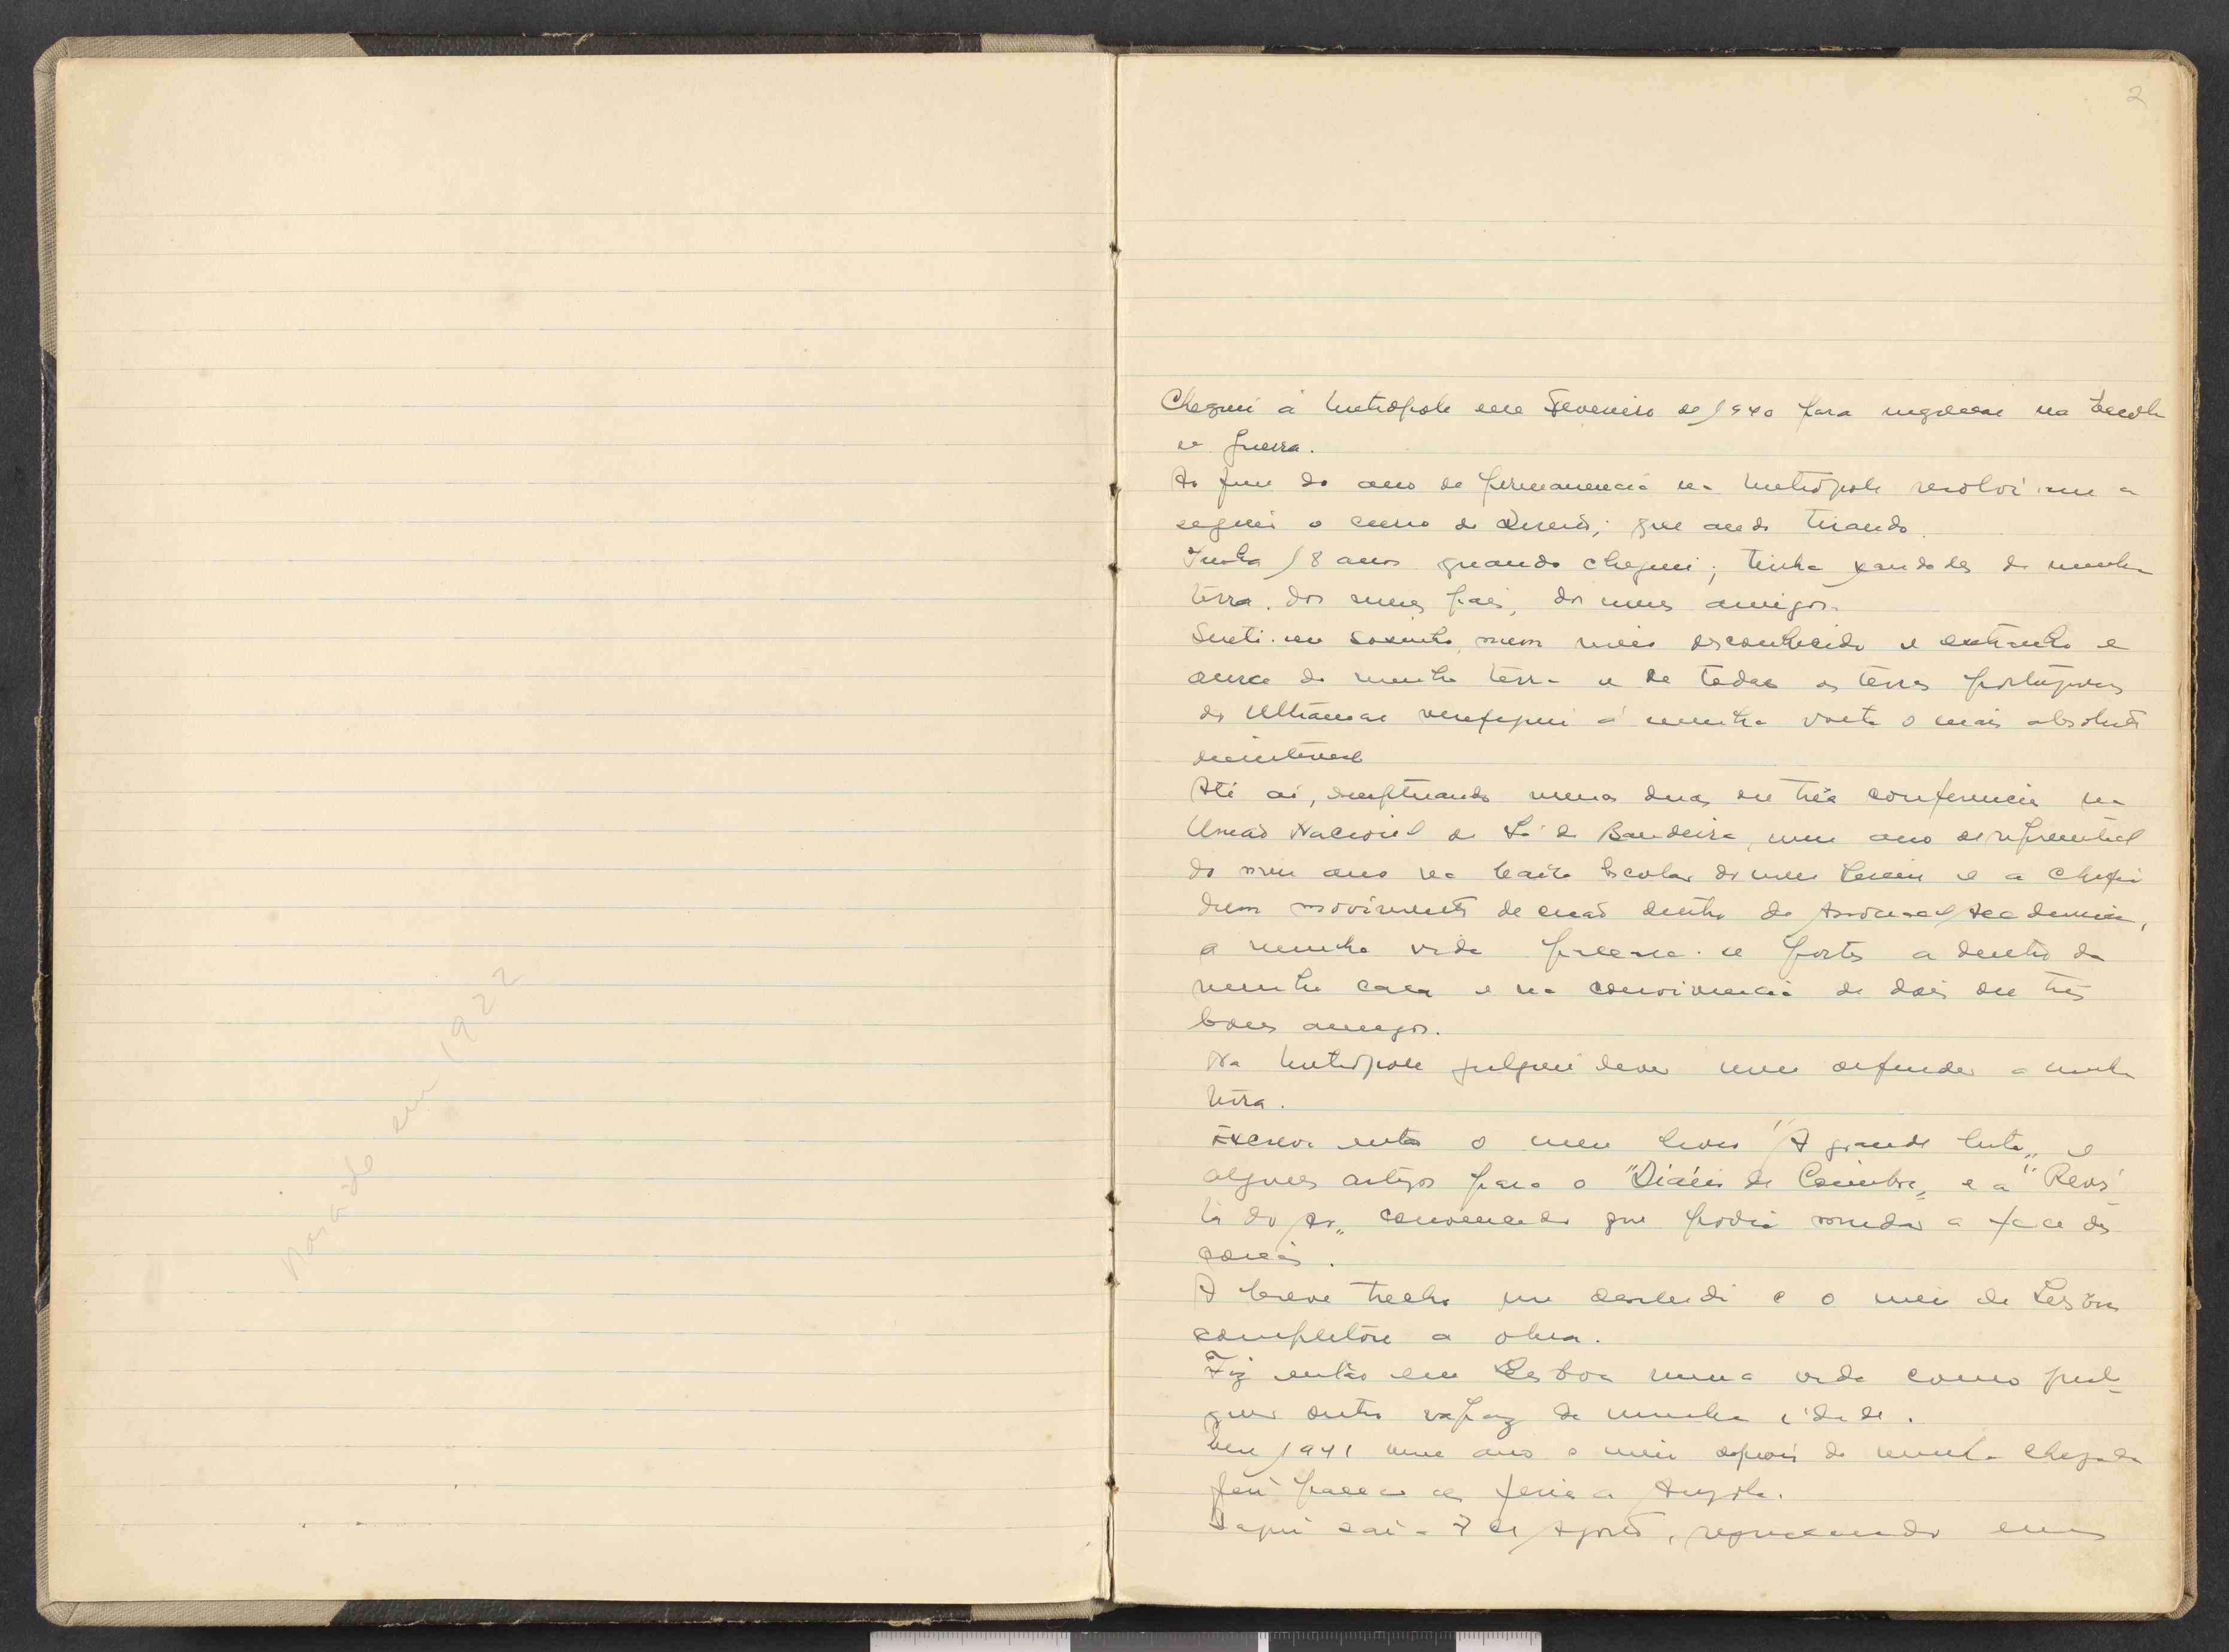 nascido em 1922
2
Cheguei á Metropole em Fevereiro de 1940 para ingressar na Escola
de Guerra.
Ao fim do ano de permanencia na Metrópole resolvi-me a
seguir o curso de Direito, que ando tirando.
Tinha 18 anos quando cheguei; tinha saudades da minha
terra, dos meus pais, dos meus amigos.
Senti-me sosinho, num meio desconhecido e extranho e
acerca da minha terra e de todas as terras portuguesas
do Ultramar verifiquei á minha volta o mais absoluto
desinteresse
Até aí, exceptuando umas duas ou três conferencias na
União Nacional de Sá da Bandeira, um ano de representante
do meu ano na Caixa Escolar do meu Liceu e a chefia
dum movimento de dentro da Associação Academica,
a minha vida passara-se portas a dentro da
minha casa e na convivencia de dois ou três
bons amigos.
Na Metropole julguei dever meu defender a minha
terra.
Escrevi então o meu livro "A grande luta" e
alguns artigos para o "Diário de Coimbra" e a "Revis
ta do convencido que podia mudar a face das
coisas.
A breve trecho me desiludi e o meio de Lisboa
completou a obra.
Fiz então em Lisboa uma vida como qual-
quer outro rapaz da minha idade.
Em 1941 um ano e meio depois da minha chegada
fui passar as ferias a Angola.
Daqui saí a 7 de Agosto, regressando em